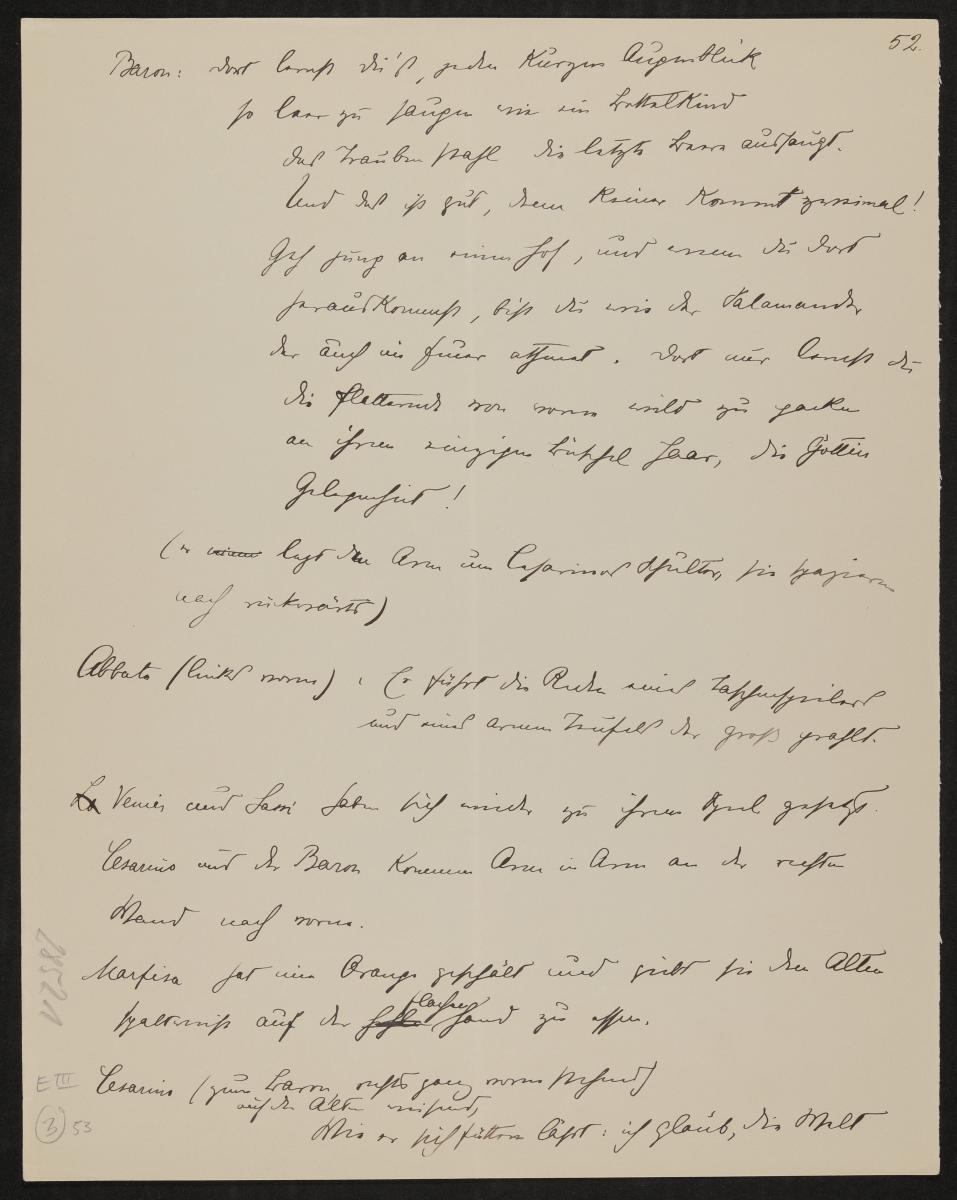 52.
Baron: dort lernst du's, jeden kurzen Augenblick
so leer zu saugen wie ein Bettelkind
das Trauben stahl die letzte Beere aussaugt.
Und das ist gut, denn keiner kommt zweimal!
Geh jung an einen Hof, und wenn du dort
herauskommst, bist du wie der Salamander
der auch im Feuer athmet. Dort nur lernst du
die flatternde von vorn wild zu packen
an ihrem einzigen Büschel Haar, die Göttin
Gelegenheit!
(er legt den Arm um Cesarinos Schulter, sie spazieren
nach rückwärts)
Abbate (links vorne): Er führt die Reden eines Taschenspielers
und eines armen Teufels der groß prahlt.
Venier und Sassi haben sich wieder zu ihrem Spiel gesetzt.
Cesarino und der Baron kommen Arm in Arm an der rechten
Wand nach vorne.
Marfisa hat eine Orange geschält und giebt sie dem Alten
spaltenweis auf der flachen Hand zu essen.
Cesarino (zum Baron, rechts ganz vorne stehend)
auf den Alten weisend,
Wie er sich füttern läßt: ich glaub, die Welt
E III
3 53